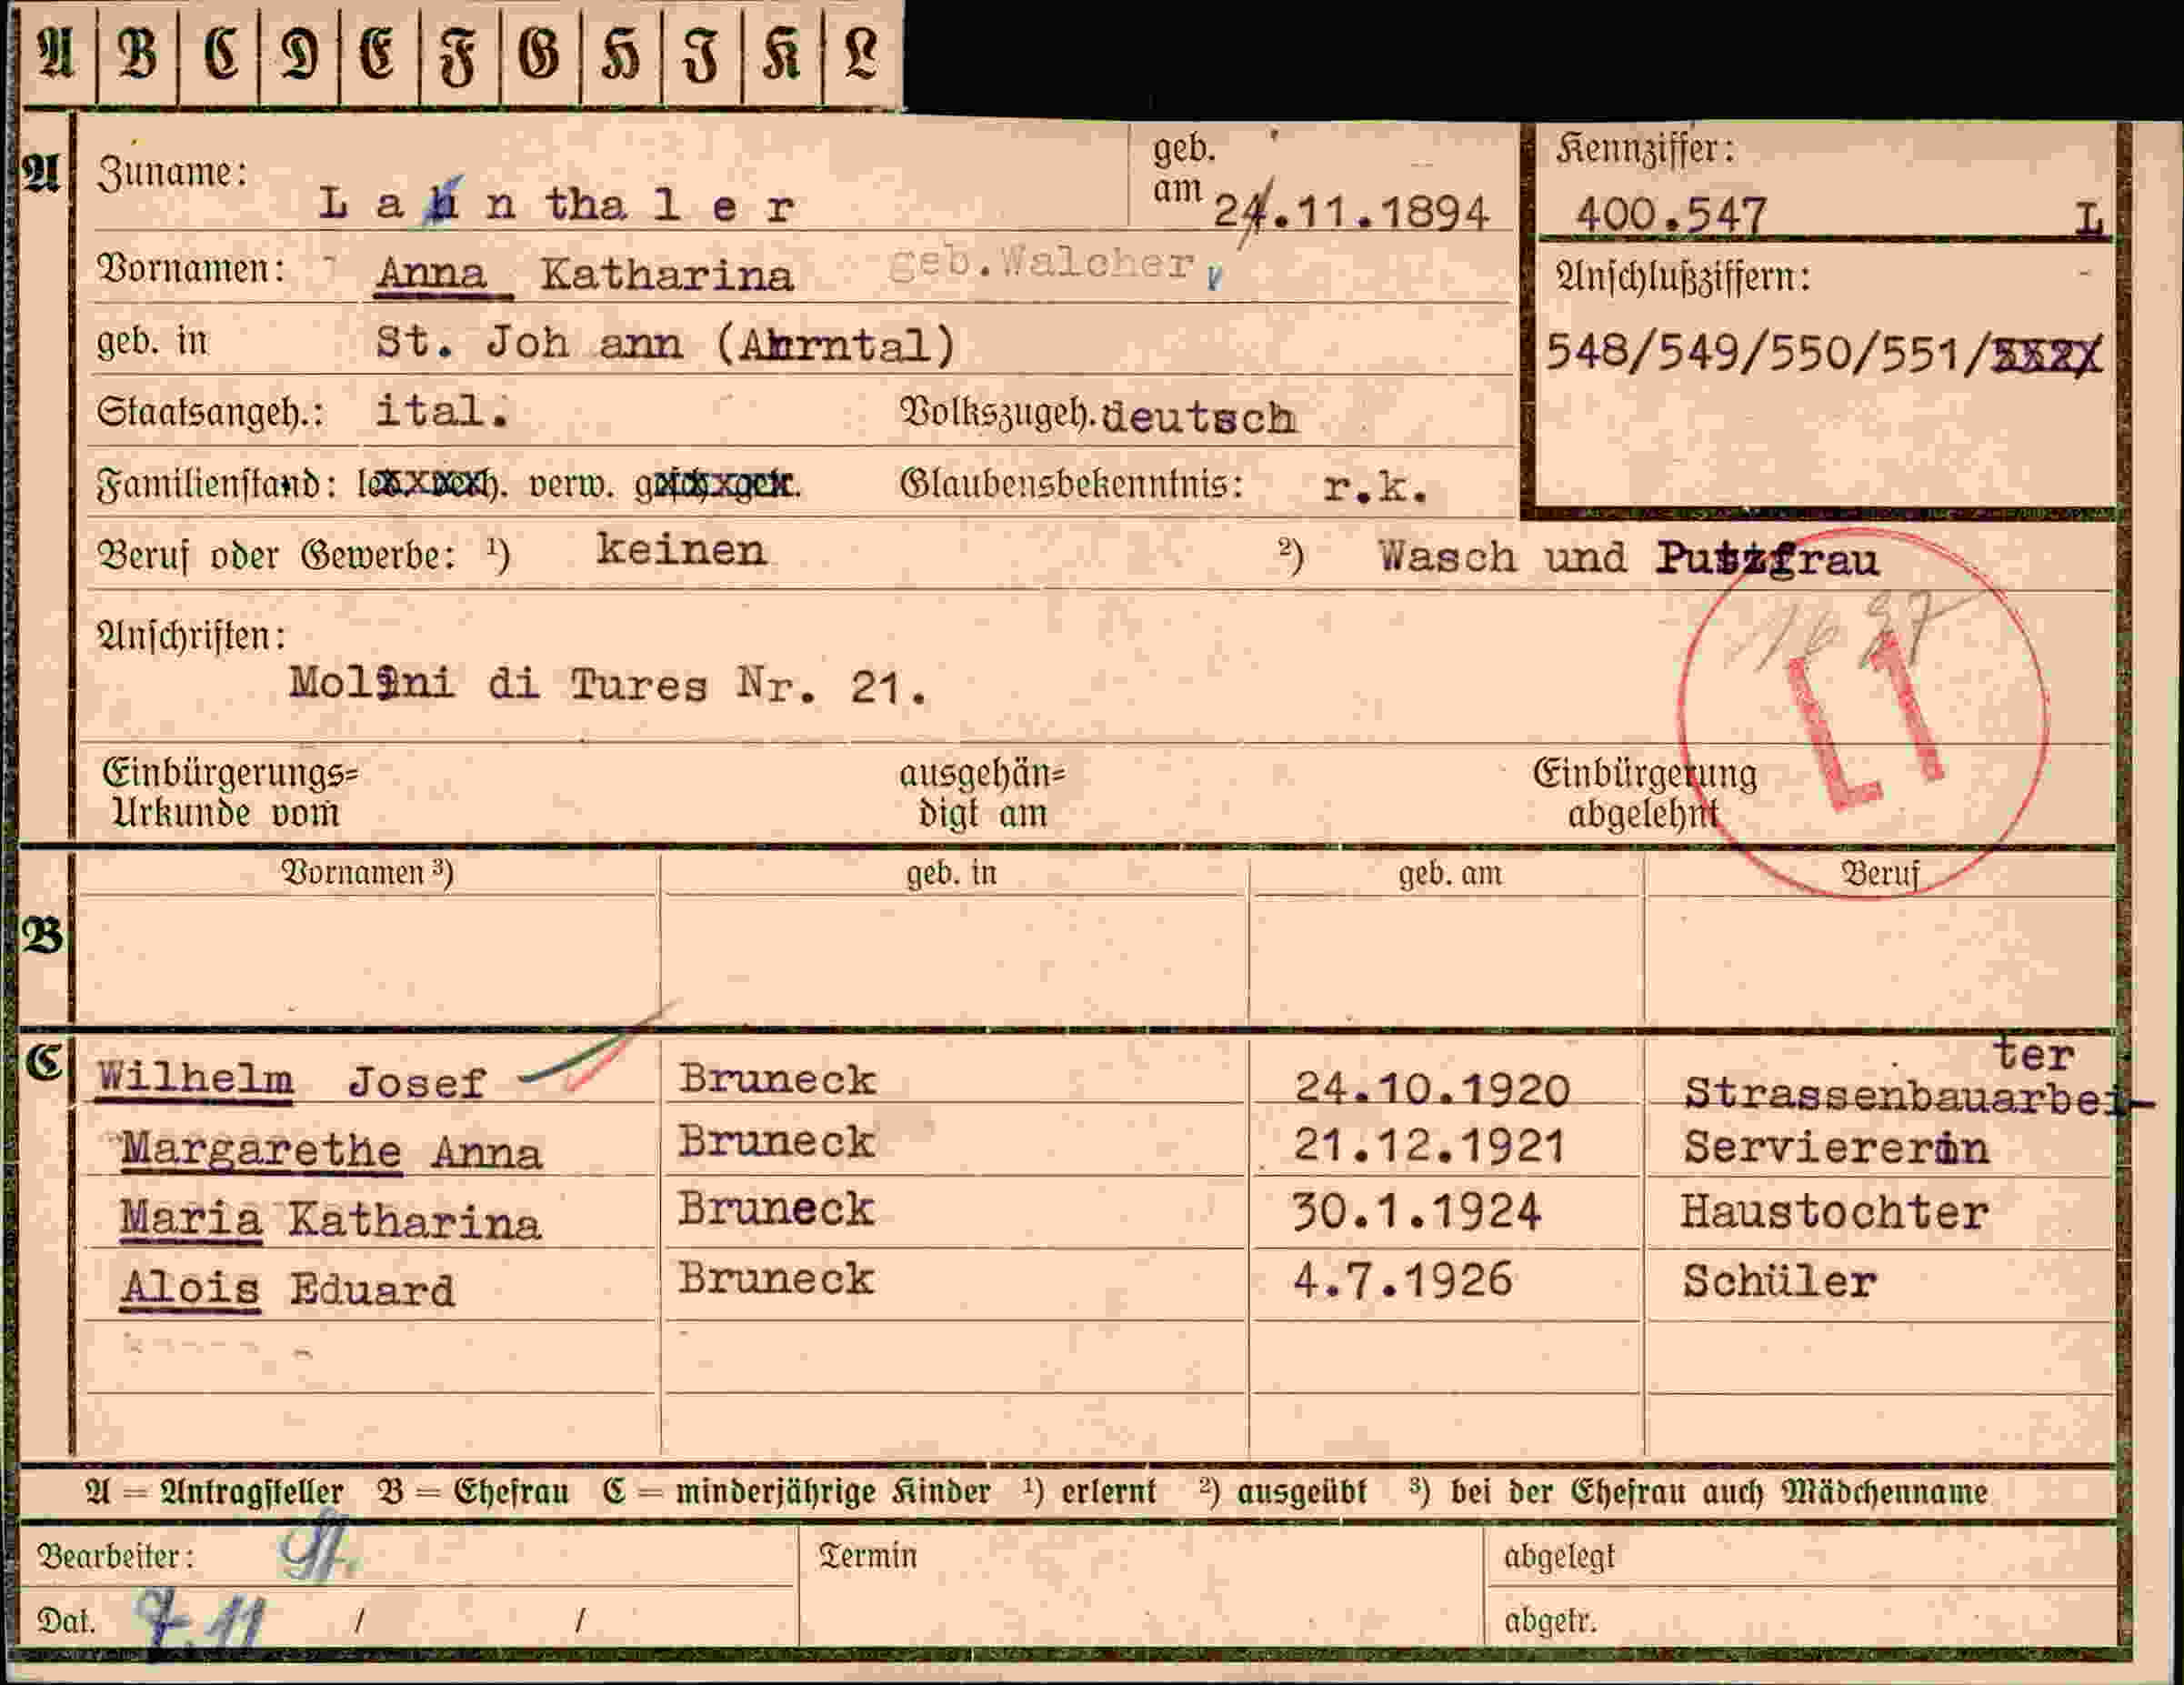 A B C D E F G H I K L
A Zuname: Lahnthaler geb. am 24.11.1894 Kennziffer: 400.547 L
Vornamen: Anna Katharina geb.Walcher
Anschlußziffern:
geb. in St. Joh ann (Ahrntal) 548/549/550/551/
Staatsangeh.: ital. Volkszugeh. deutsch
Familienstand: verw. Glaubensbekenntnis: r.k.
Beruf oder Gewerbe: ¹) keinen ²) Wasch und Putzfrau
Anschriften:
Molini di Tures Nr. 21.
L1
Einbürgerungs= ausgehän= Einbürgerung
Urkunde vom digt am abgelehnt
Vornamen ³) geb. in geb. am Beruf
B
ter
C Wilhelm Josef Bruneck 24.10.1920 Strassenbauarbei-
Margarethe Anna Bruneck 21.12.1921 Serviererin
Maria Katharina Bruneck 30.1.1924 Haustochter
Alois Eduard Bruneck 4.7.1926 Schüler
A = Antragsteller B = Ehefrau C = minderjährige Kinder ¹) erlernt ²) ausgeübt ³) bei der Ehefrau auch Mädchenname
Bearbeiter: Termin abgelegt
Dat. 7.11 / / abgetr.